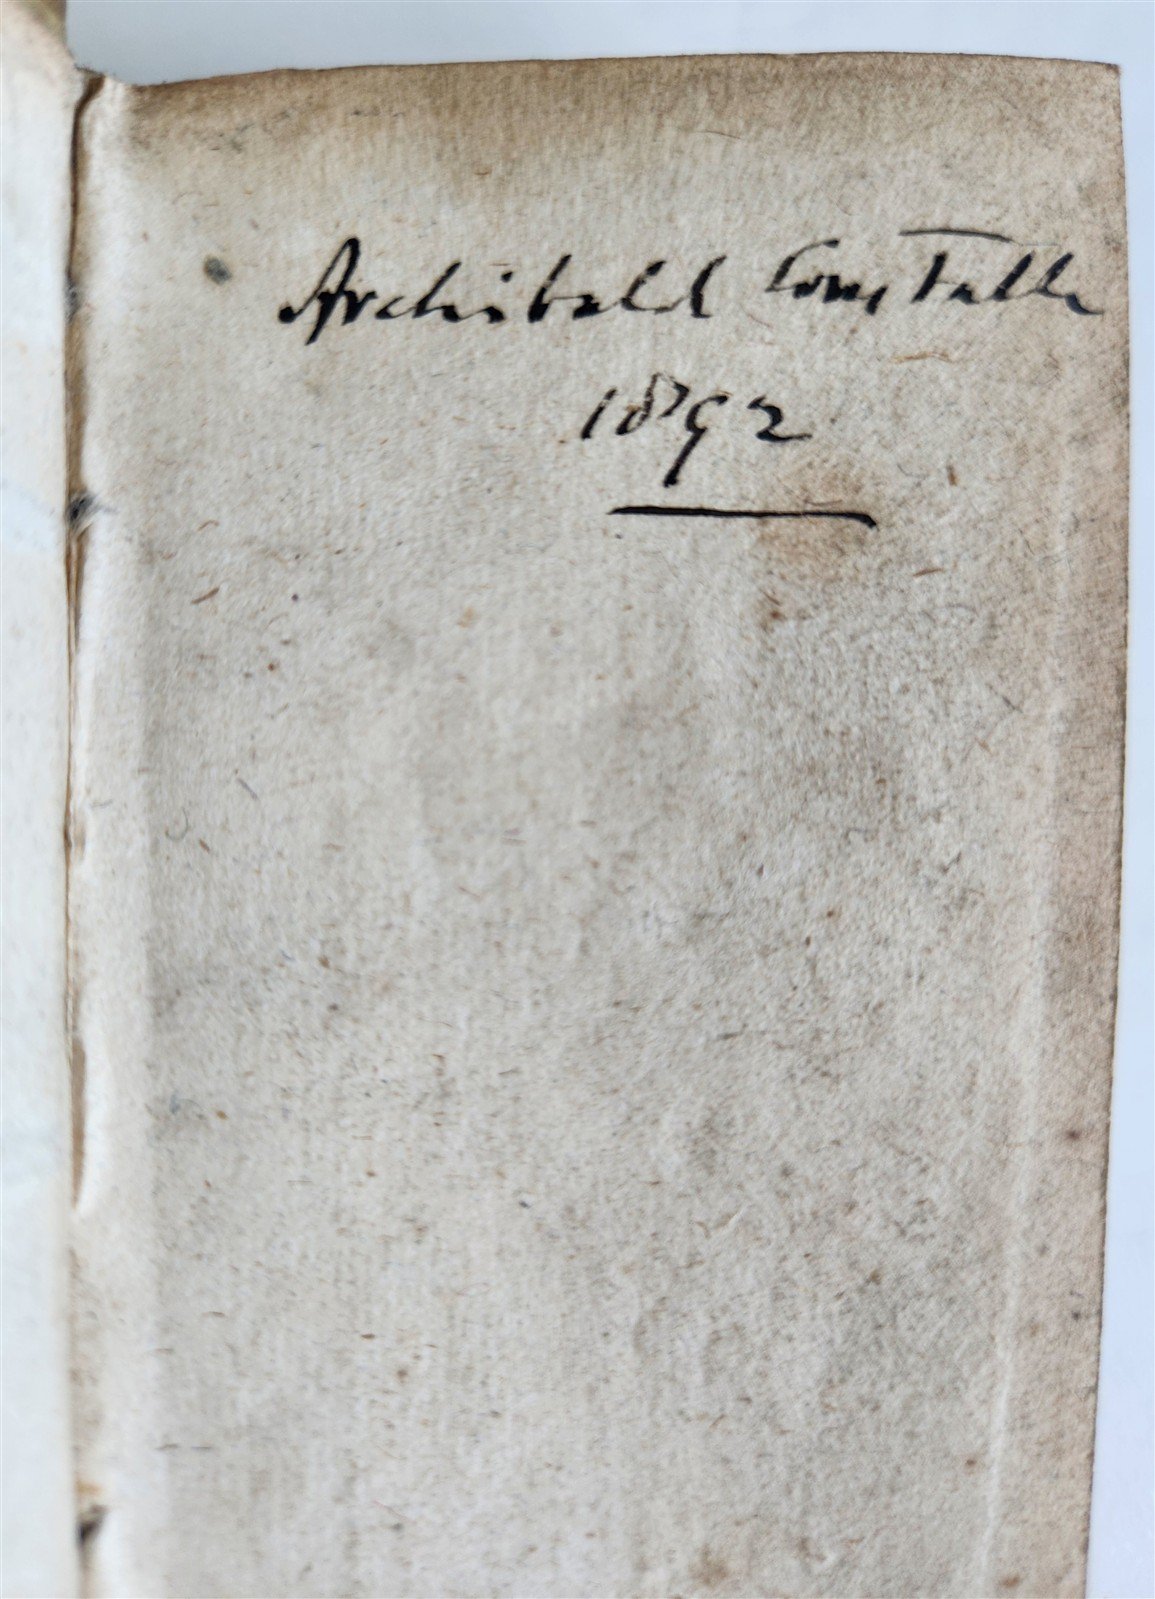 Archibald Constable
1892